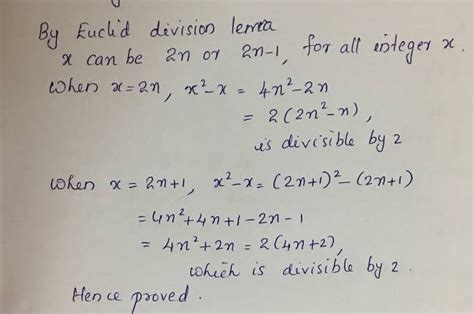 By Euclid division lema
x can be 2n or 2n-1, for all integer x.
When x=2n, x²-x = 4n²-2n
= 2(2n²-n),
is divisible by 2
When x = 2n+1, x²-x= (2n+1)²-(2n+1)
=4n²+4n+1-2n-1
= 4n²+2n = 2(4n+2),
which is divisible by 2.
Hence proved.